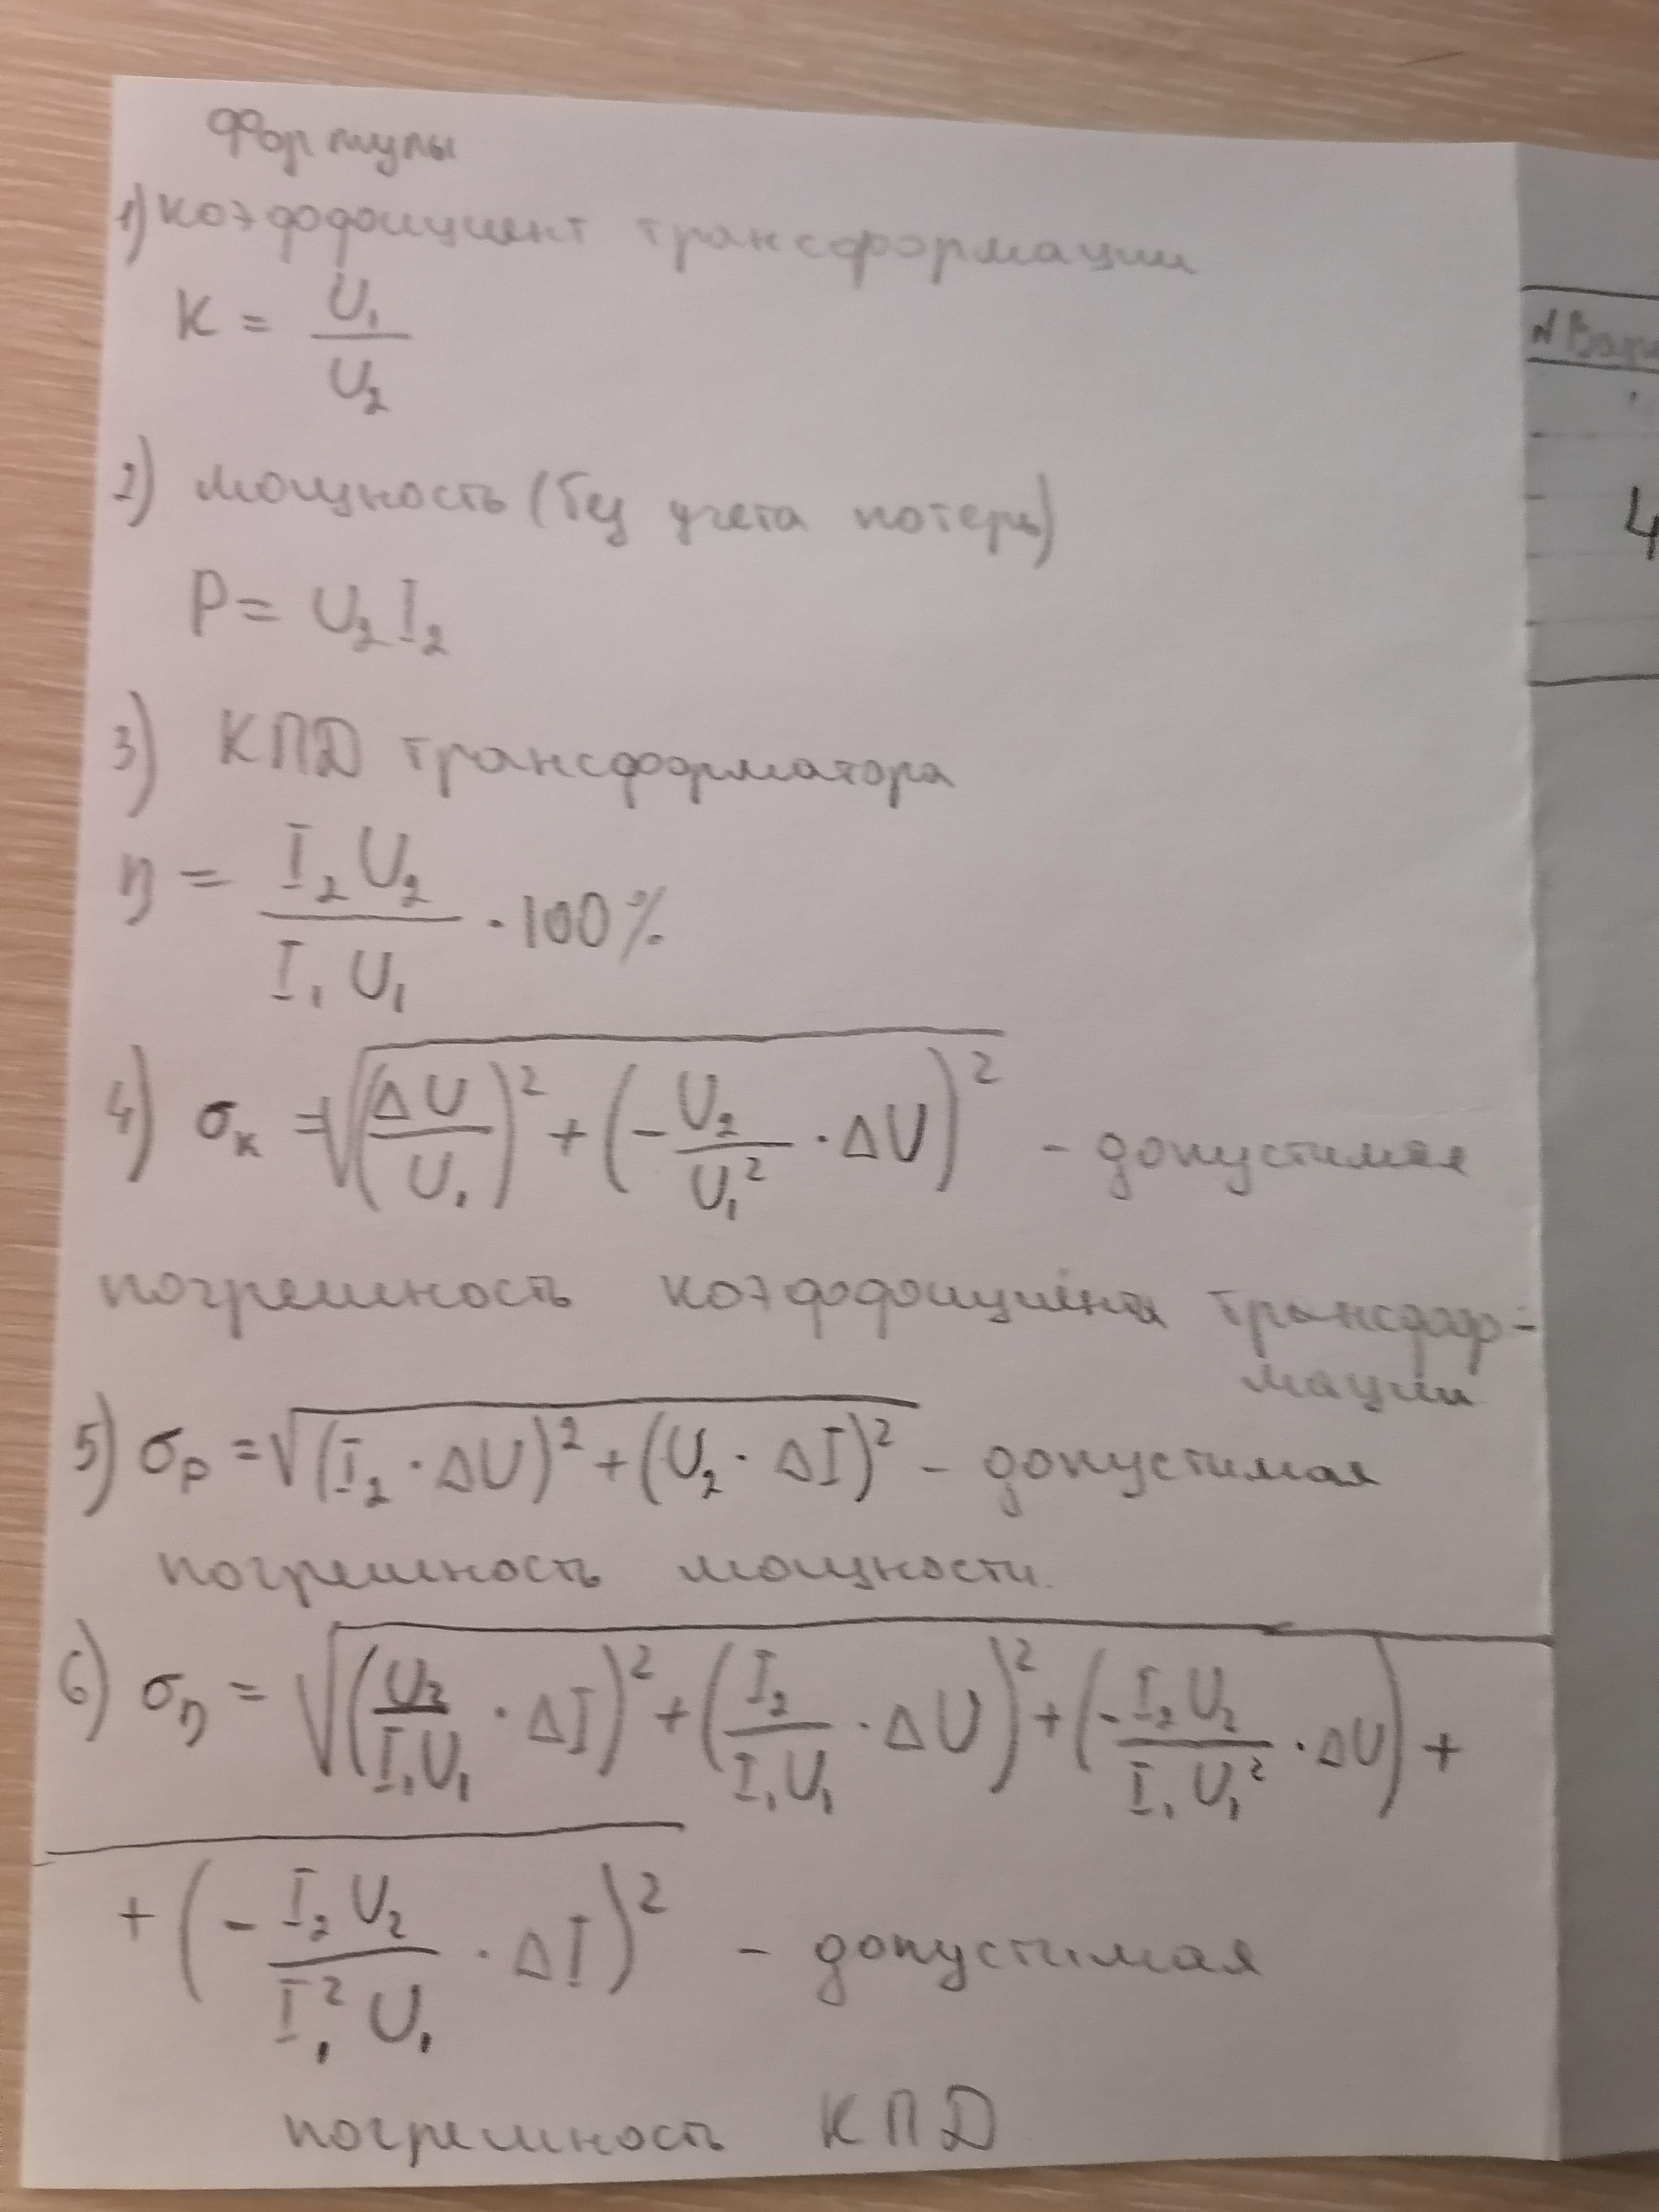 Формулы
1) коэффициент трансформации
K = U₁/U₂
2) мощность (без учета потерь)
P = U₂ I₂
3) КПД трансформатора
η = (I₂ U₂)/(I₁ U₁) · 100%
4) σₖ = √((ΔU/U₁)² + (-U₂/U₁² · ΔU)²) - допустимая
погрешность коэффициента трансфор-
мации
5) σₚ = √((I₂ · ΔU)² + (U₂ · ΔI)²) - допустимая
погрешность мощности.
6) ση = √((U₂/(I₁U₁) · ΔI)² + (I₂/(I₁U₁) · ΔU)² + (-I₂U₂/(I₁U₁²) · ΔU) +
+ (-I₂U₂/(I₁²U₁) · ΔI)² - допустимая
погрешность КПД
4